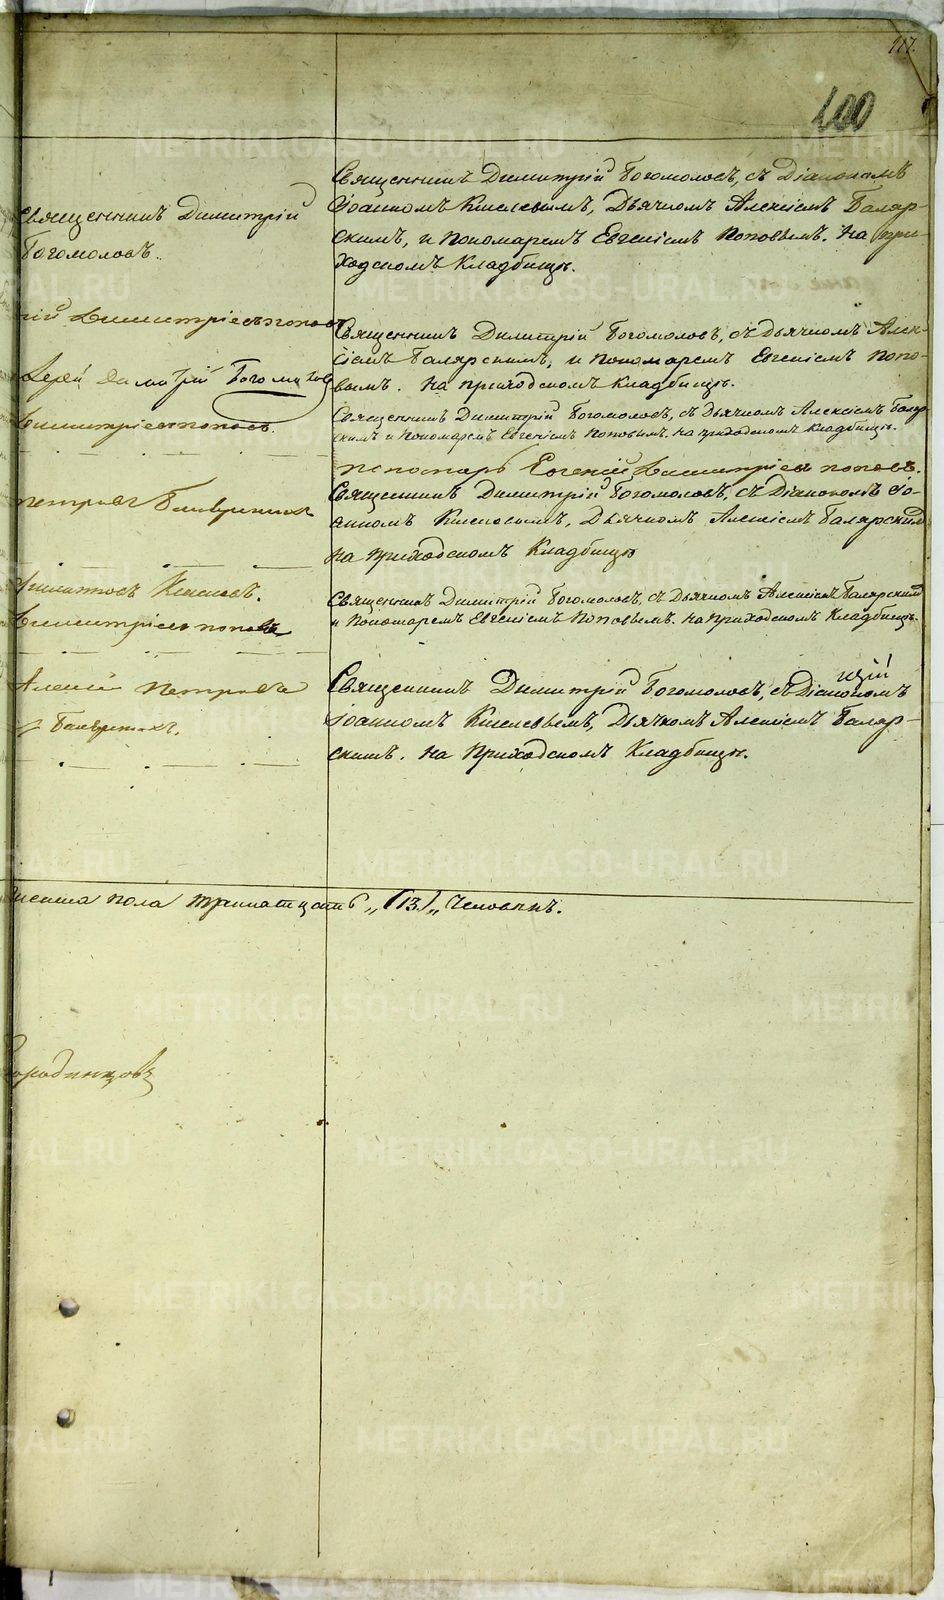 117.
100
Священникъ Димитрій
Богомоловъ.
Священникъ Димитрій Богомоловъ, съ Діакономъ
Іоанномъ Киселевымъ, Дьячкомъ Алексіемъ Баляр-
скимъ, и Пономаремъ Евгеніемъ Поповымъ. На при-
ходскомъ Кладбищѣ.
Димитріевъ Поповъ
Іерей Димитрій Богомоловъ
Димитріевъ Поповъ.
Священникъ Димитрій Богомоловъ, съ Дьячкомъ Алек-
сіемъ Балярскимъ, и Пономаремъ Евгеніемъ Попо-
вымъ. На приходскомъ Кладбищѣ.
Священникъ Димитрій Богомоловъ, съ Дьячкомъ Алексіемъ Баляр
скимъ и Пономаремъ Евгеніемъ Поповымъ. На приходскомъ Кладбищѣ.
Пономарь Евгеній Димитріевъ Поповъ.
Петровъ
Священникъ Димитрій Богомоловъ, съ Діакономъ Іо-
анномъ Киселевымъ, Дьячкомъ Алексіемъ Балярским
На приходскомъ Кладбищѣ
Димитріевъ Поповъ
Священникъ Димитрій Богомоловъ, съ Дьячкомъ Алексіемъ Балярским
и Пономаремъ Евгеніемъ Поповымъ. На приходскомъ Кладбищѣ.
Алексій Петровъ
Священникъ Димитрій Богомоловъ, съ Діакономъ
Іоанномъ Киселевымъ, Дьячкомъ Алексіемъ Баляр-
скимъ. На Приходскомъ Кладбищѣ.
пола тринатцать „(13)„ Человѣкъ.
METRIKI.GASO-URAL.RU